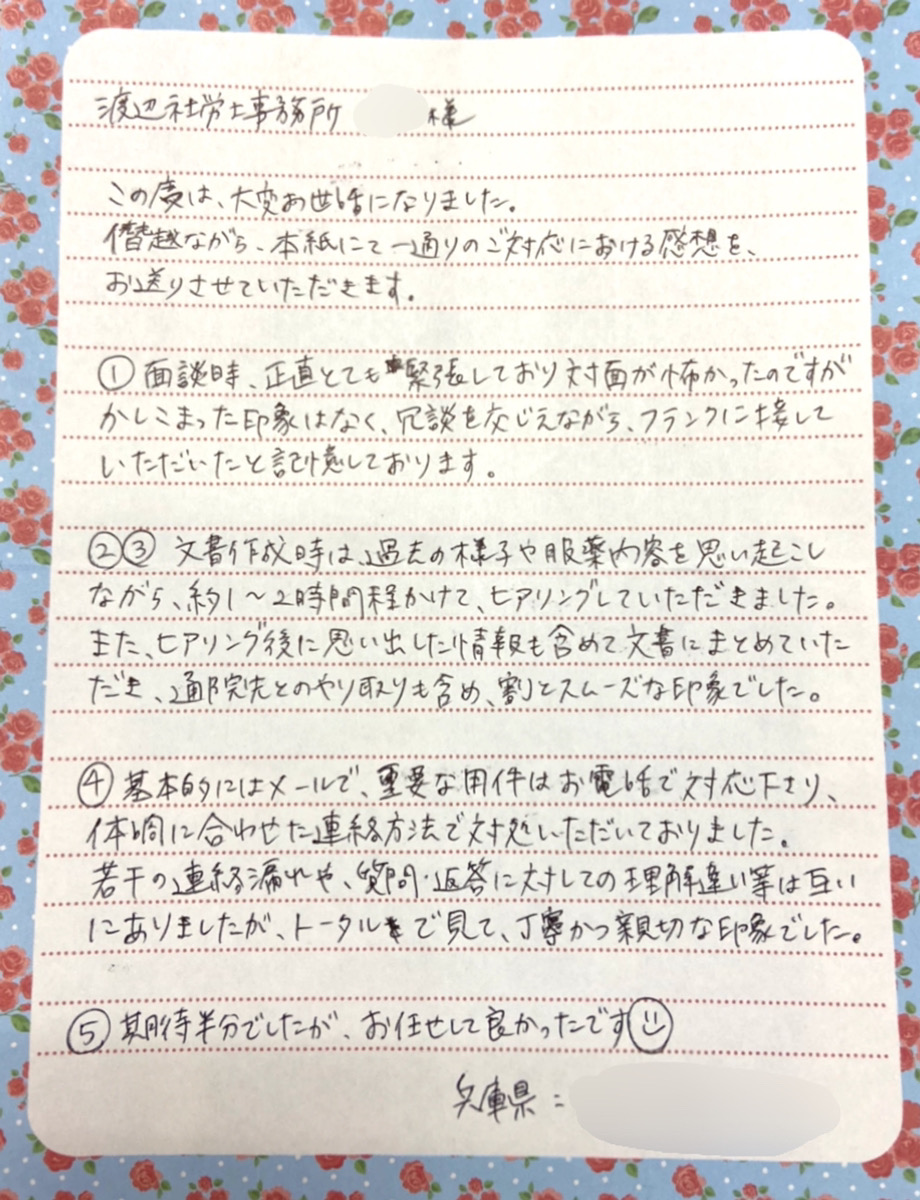 渡辺社労士事務所 様
この度は、大変お世話になりました。
僭越ながら、本紙にて一通りのご対応における感想を、
お送りさせていただきます。
① 面談時、正直とても緊張しており対面が怖かったのですが
かしこまった印象はなく、冗談を交じえながら、フランクに接して
いただいたと記憶しております。
②③ 文書作成時は、過去の様子や服薬内容を思い起こし
ながら、約1〜2時間程かけて、ヒアリングしていただきました。
また、ヒアリング後に思い出した情報も含めて文書にまとめていた
だき、通院先とのやり取りも含め、割とスムーズな印象でした。
④ 基本的にはメールで、重要な用件はお電話で対応下さり、
体調に合わせた連絡方法で対処いただいておりました。
若干の連絡漏れや、質問・返答に対しての理解違い等は互い
にありましたが、トータルで見て、丁寧かつ親切な印象でした。
⑤ 期待半分でしたが、お任せして良かったです
兵庫県：